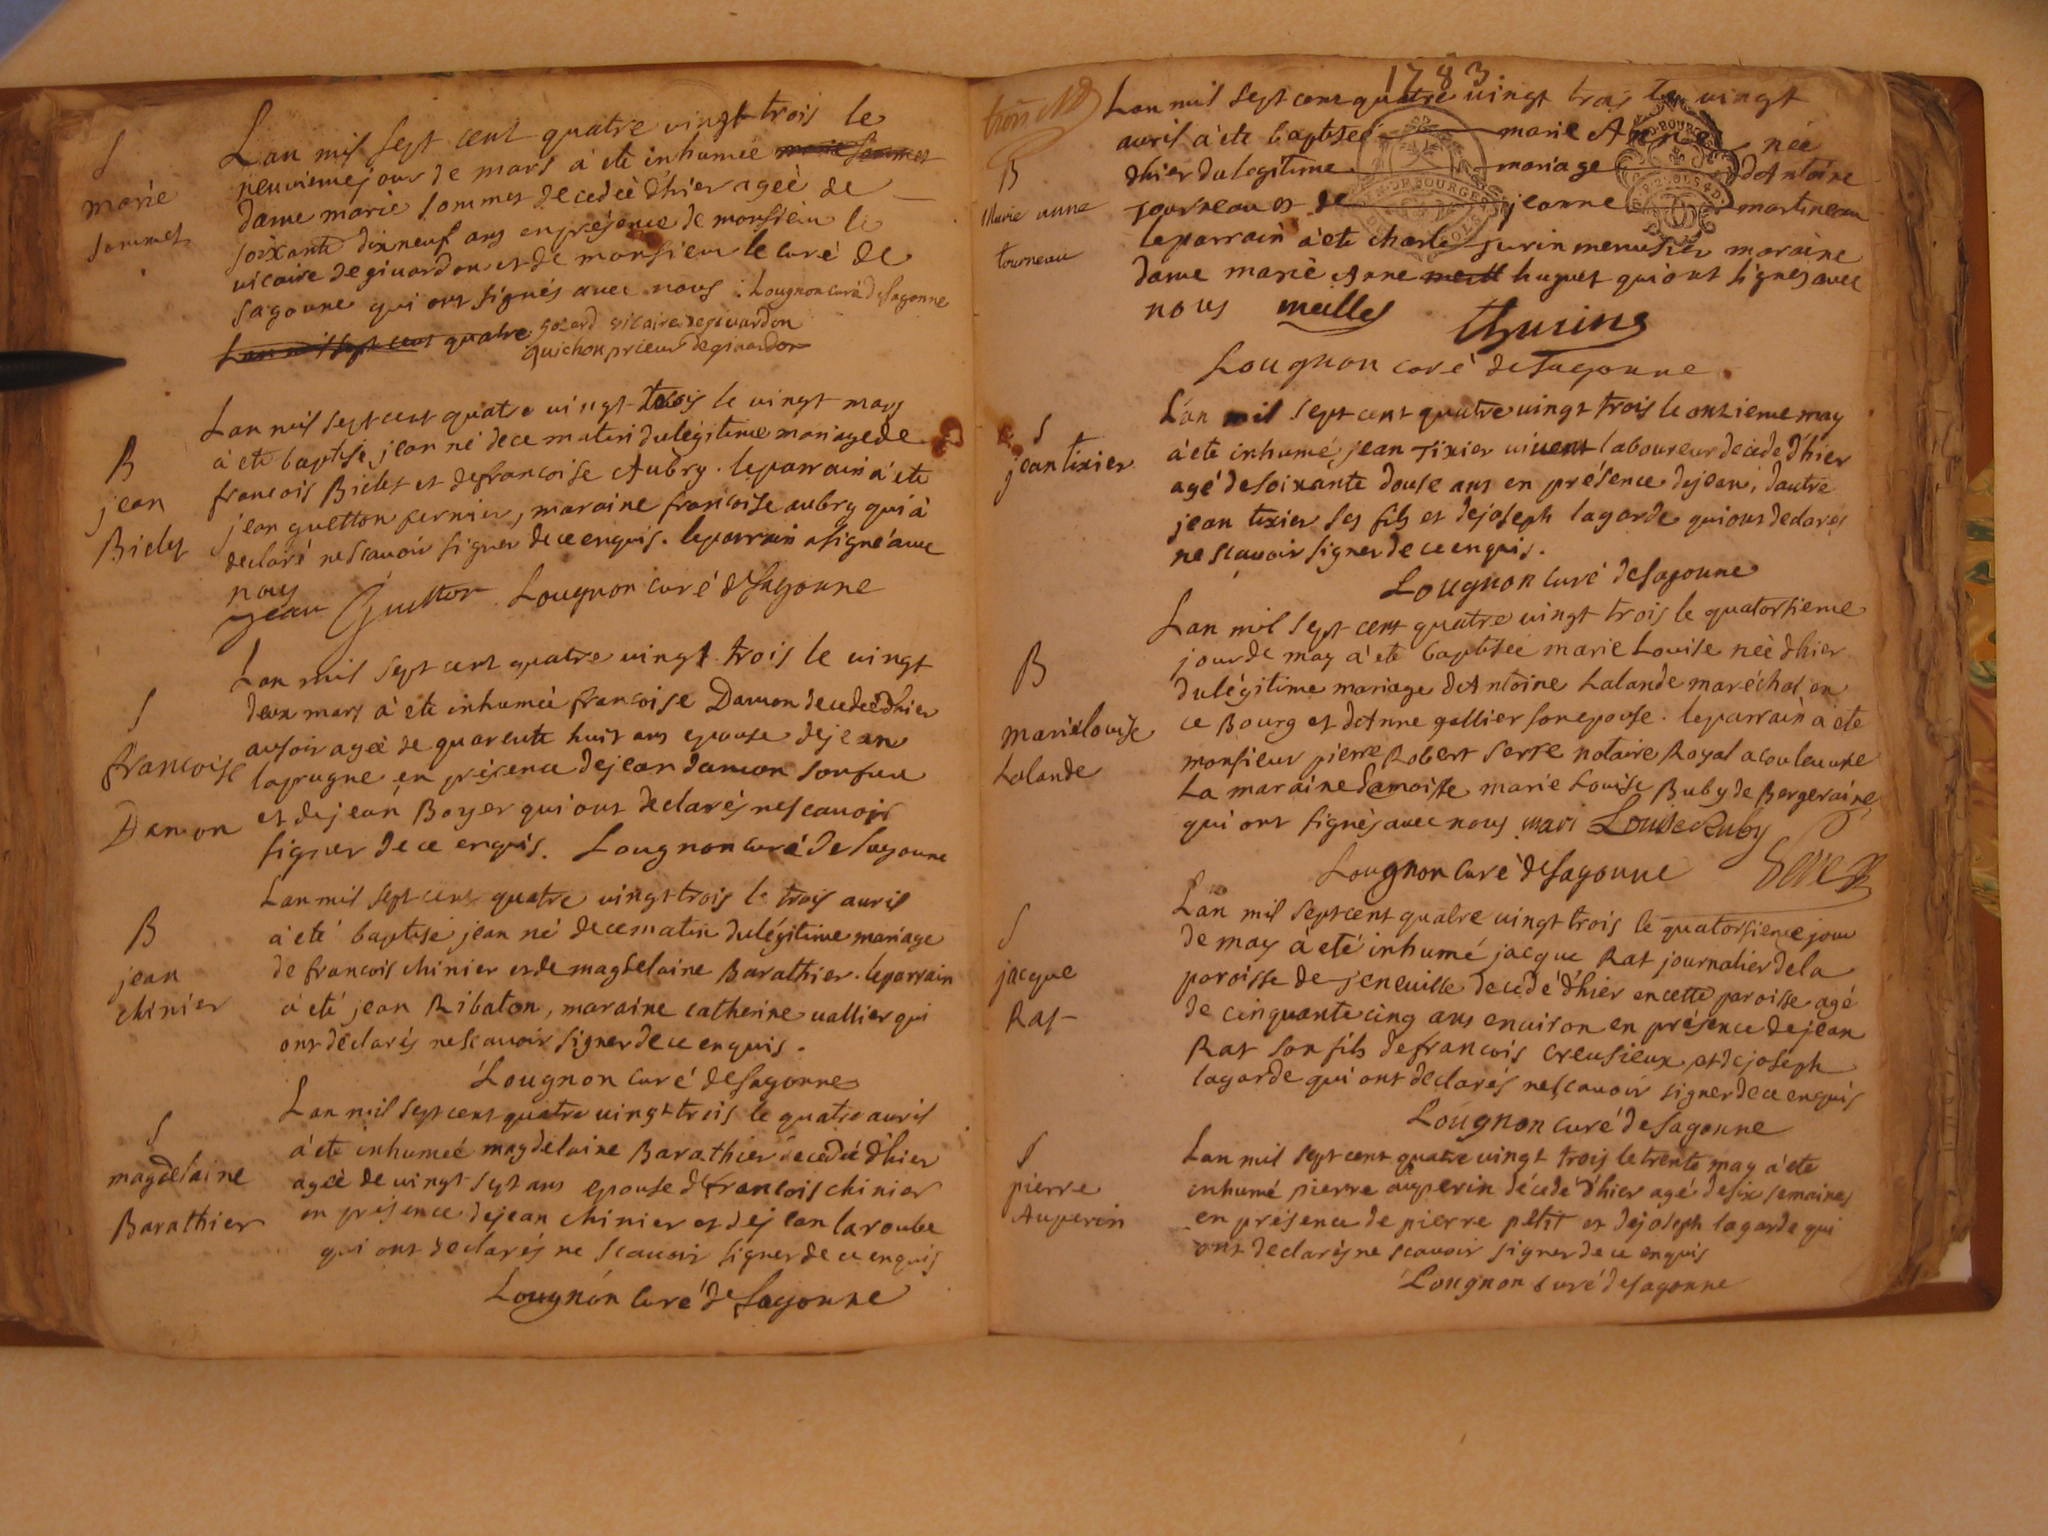 S
marie
sommet
Lan mil sept cent quatre vingt trois le
neuvieme jour de mars à eté inhumeé marie sommet
dame marie sommet decedeé d'hier ageè de
soixante dixneuf ans en présence de monsieur le
vicaire de givardon et de monsieur le curé de
sagonne qui ont signés avec nous. Lougnon curé de Sagonne
Lan mil sept cent quatre gozard vicaire de givardon
guichon prieur de givardon
B
jean
Bielet
Lan mil sept cent quatre vingt trois le vingt mars
à eté baptisé jean né de ce matin du légitime mariage de
francois Bielet et de francoise Aubry. le parrain à eté
jean guetton fermier, maraine francoise aubry qui à
declaré ne scavoir signer de ce enquis. le parrain a signé avec
nous
jean Guetton Lougnon curé de Sagonne
S
francoise
Damon
Lan mil sept cent quatre vingt trois le vingt
deux mars à eté inhumeé francoise Damon decedeé d'hier
au soir ageé de quarente huit ans epouse de jean
laprugne en présence de jean damon son frere
et de jean Boyer qui ont declarés ne scavoir
signer de ce enquis. Lougnon curé de Sagonne
B
jean
chinier
Lan mil sept cent quatre vingt trois le trois avril
à eté baptisé jean né de ce matin du légitime mariage
de francois chinier et de magdelaine Barathier. le parrain
à eté jean Ribaton, maraine catherine vallier qui
ont déclarés ne scavoir signer de ce enquis.
Lougnon curé de Sagonne
S
magdelaine
Barathier
Lan mil sept cent quatre vingt trois le quatre avril
à eté inhumeé magdelaine Barathier decedeé d'hier
ageé de vingt sept ans epouse de francois chinier
en présence de jean chinier et de jean laroube
qui ont declarés ne scavoir signer de ce enquis
Lougnon curé de Sagonne
1783.
B
Marie anne
tourneau
Lan mil sept cent quatre vingt trois le vingt
avril à eté baptiseé marie Anne née
d'hier du legitime mariage d'Antoine
journeau et de jeanne martineau
le parrain à eté charle jurin menuisier maraine
dame marie Anne huguet qui ont signes avec
nous
Lougnon curé de Sagonne.
S
jean tixier
L'an mil sept cent quatre vingt trois le onzieme may
à eté inhumé jean Tixier vivent laboureur decedé d'hier
agé de soixante douse ans en présence de jean, d'autre
jean tixier ses fils et de joseph lagarde qui ont declarés
ne scavoir signer de ce enquis.
Lougnon curé de Sagonne
B
marie louise
Lalande
Lan mil sept cent quatre vingt trois le quatorsieme
jour de may à eté baptiseé marie Louise neé d'hier
du légitime mariage d'Antoine Lalande maréchal en
ce Bourg et d'Anne gallier son epouse. le parrain à eté
monsieur pierre Robert serre notaire Royal a couleuvre
La maraine Damoiselle marie Louise Buby de Bergeraine
qui ont signés avec nous. mari Louise Ruby
Lougnon curé de Sagonne Serre
S
jacque
Rat
Lan mil sept cent quatre vingt trois le quatorsieme jour
de may à eté inhumé jacque Rat journalier de la
paroisse de jeneuille decedé d'hier en cette paroisse agé
de cinquante cinq ans environ en présence de jean
Rat son fils de francois creusieux et de joseph
lagarde qui ont declarés ne scavoir signer de ce enquis
Lougnon curé de Sagonne
S
pierre
Auperin
Lan mil sept cent quatre vingt trois le trente may à eté
inhumé pierre auperin décedé d'hier agé de six semaines
en présence de pierre petit et de joseph lagarde qui
ont declarés ne scavoir signer de ce enquis
Lougnon curé de Sagonne